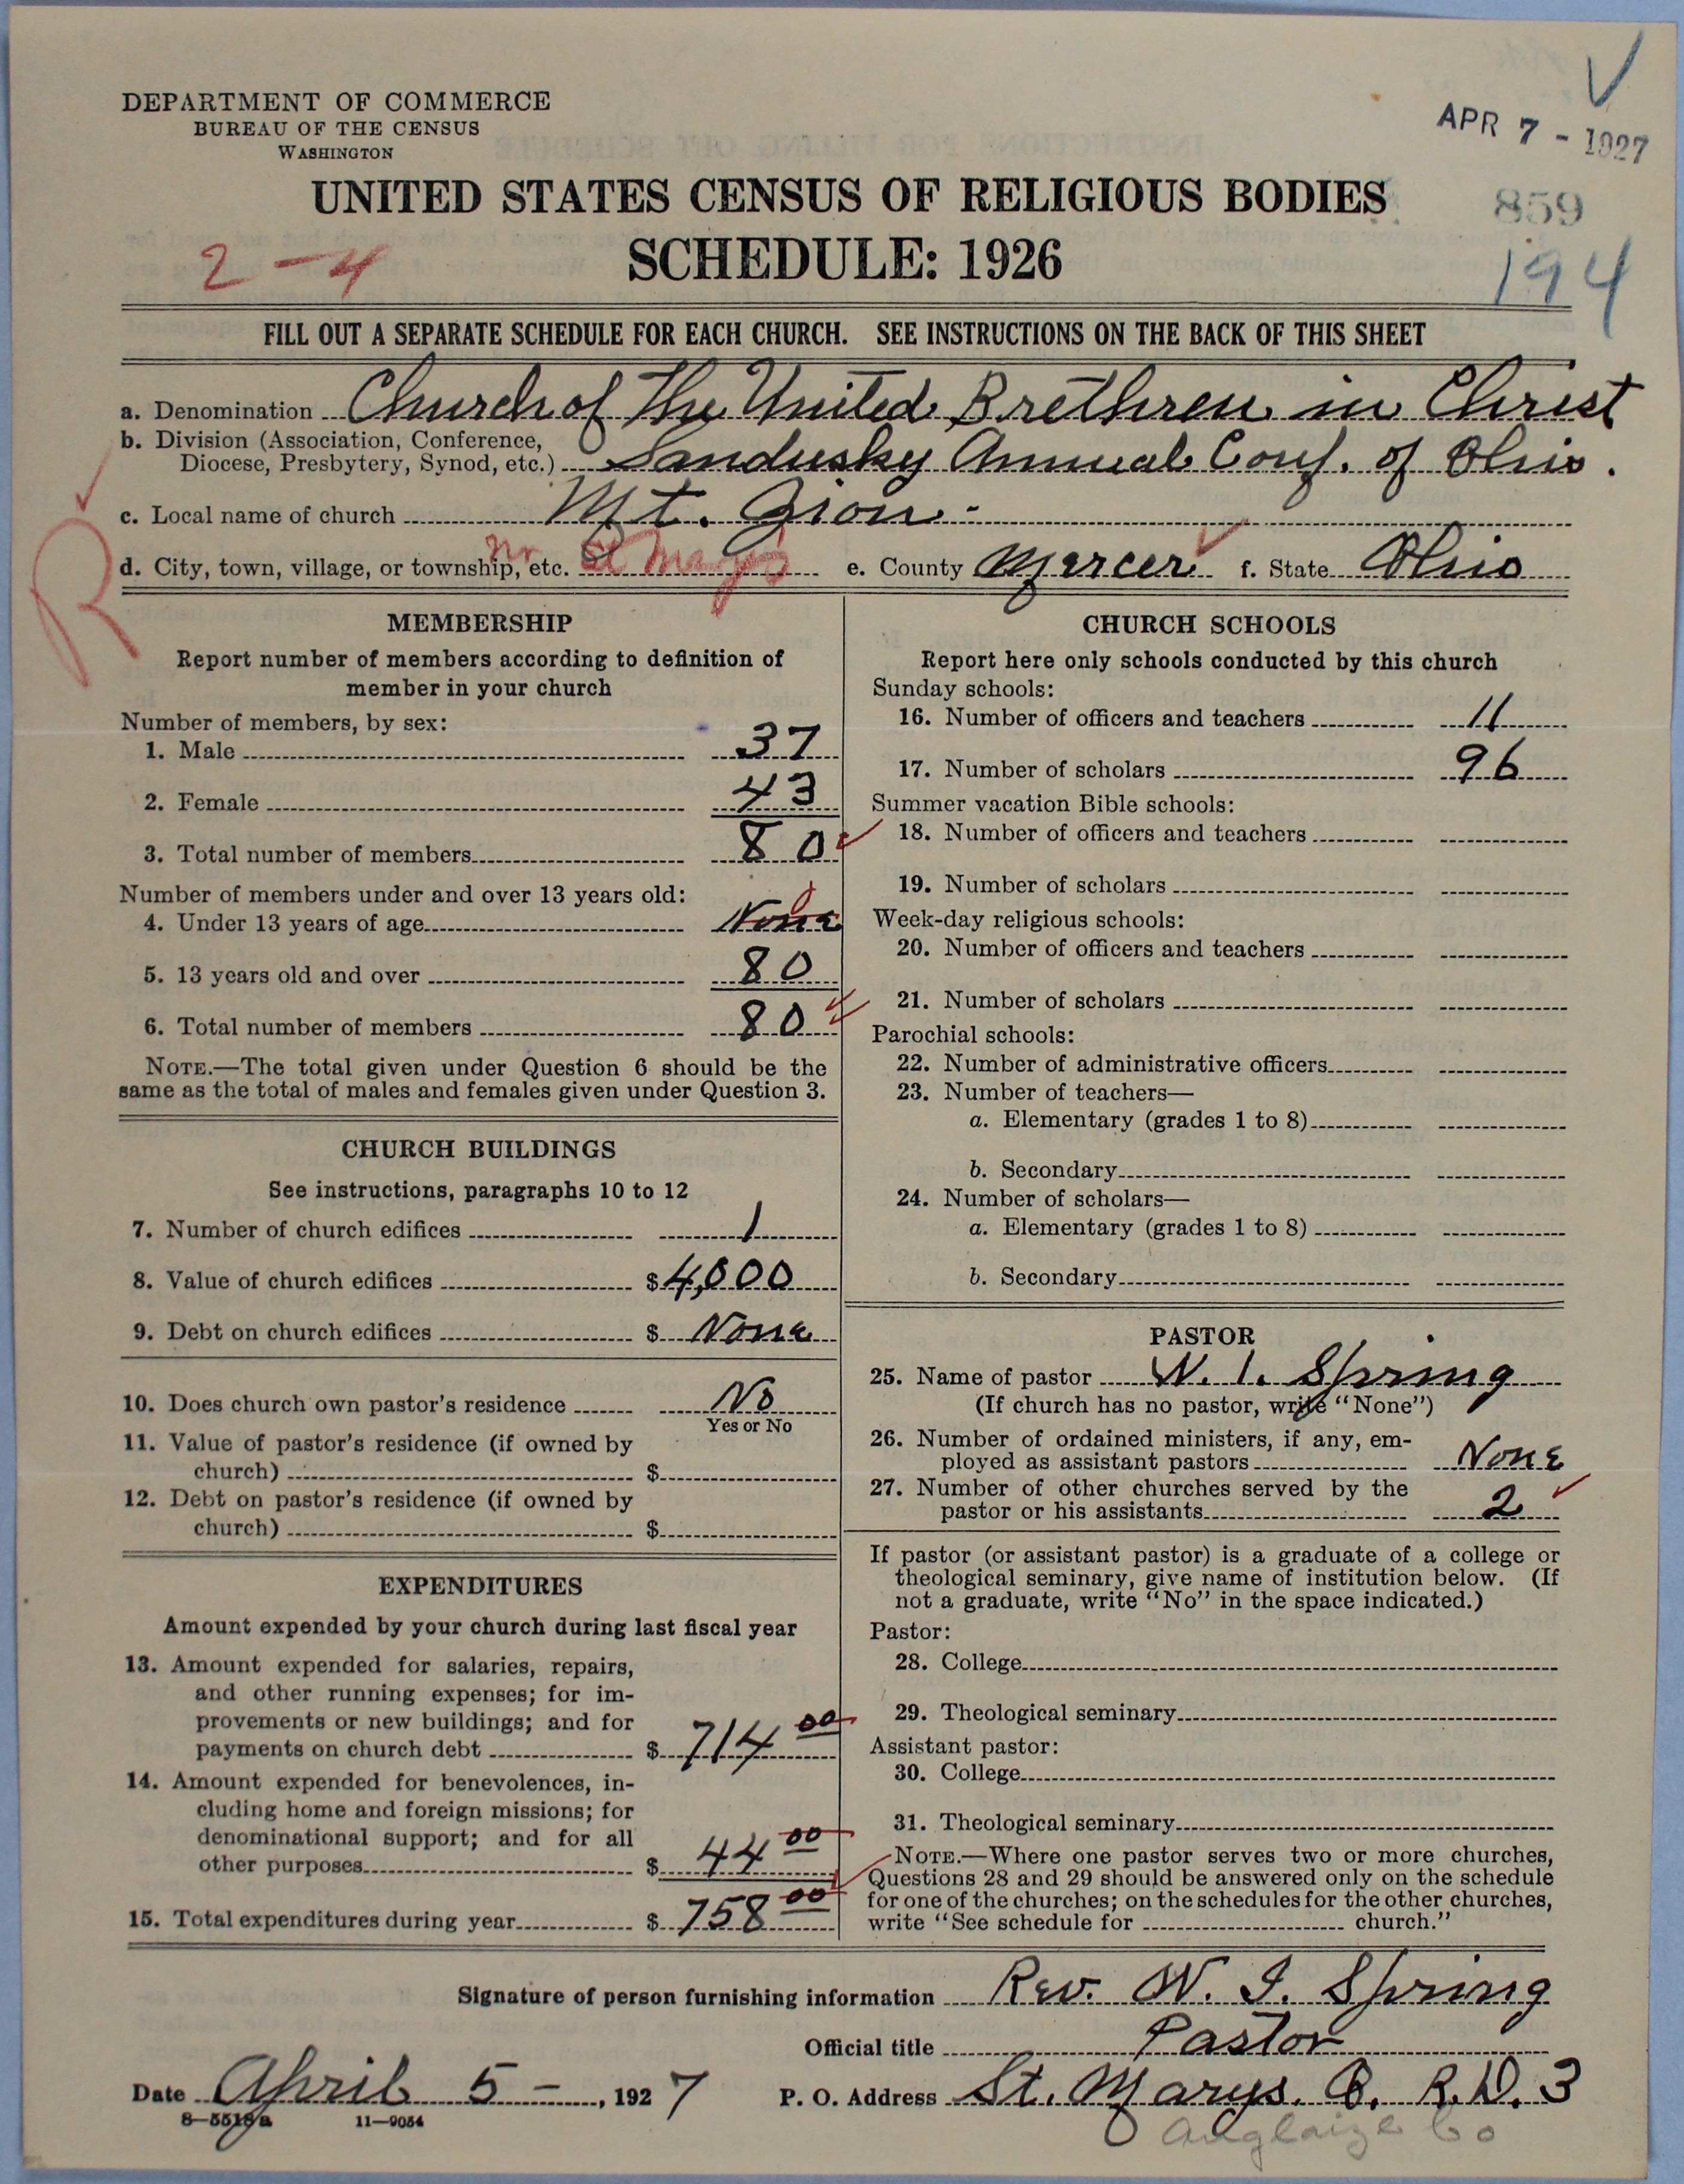 DEPARTMENT OF COMMERCE
BUREAU OF THE CENSUS
WASHINGTON
APR 7 - 1927
UNITED STATES CENSUS OF RELIGIOUS BODIES
859
2-4
SCHEDULE: 1926
194
FILL OUT A SEPARATE SCHEDULE FOR EACH CHURCH. SEE INSTRUCTIONS ON THE BACK OF THIS SHEET
a. Denomination Church of The United Brethren in Christ
b. Division (Association, Conference, Diocese, Presbytery, Synod, etc.) Sandusky Annual Conf. of Ohio.
c. Local name of church Mt. Zion
R
d. City, town, village, or township, etc. nr St Marys e. County Mercer f. State Ohio
MEMBERSHIP
Report number of members according to definition of
member in your church
Number of members, by sex:
1. Male 37
2. Female 43
3. Total number of members 80
Number of members under and over 13 years old:
4. Under 13 years of age None
5. 13 years old and over 80
6. Total number of members 80
NOTE.—The total given under Question 6 should be the
same as the total of males and females given under Question 3.
CHURCH BUILDINGS
See instructions, paragraphs 10 to 12
7. Number of church edifices 1
8. Value of church edifices $4,000
9. Debt on church edifices $ None
10. Does church own pastor's residence No
Yes or No
11. Value of pastor's residence (if owned by
church) $
12. Debt on pastor's residence (if owned by
church) $
EXPENDITURES
Amount expended by your church during last fiscal year
13. Amount expended for salaries, repairs,
and other running expenses; for im-
provements or new buildings; and for
payments on church debt $ 714 00
14. Amount expended for benevolences, in-
cluding home and foreign missions; for
denominational support; and for all
other purposes $ 44 00
15. Total expenditures during year $ 758 00
CHURCH SCHOOLS
Report here only schools conducted by this church
Sunday schools:
16. Number of officers and teachers 11
17. Number of scholars 96
Summer vacation Bible schools:
18. Number of officers and teachers
19. Number of scholars
Week-day religious schools:
20. Number of officers and teachers
21. Number of scholars
Parochial schools:
22. Number of administrative officers
23. Number of teachers—
a. Elementary (grades 1 to 8)
b. Secondary
24. Number of scholars—
a. Elementary (grades 1 to 8)
b. Secondary
PASTOR
25. Name of pastor W. I. Spring
(If church has no pastor, write "None")
26. Number of ordained ministers, if any, em-
ployed as assistant pastors None
27. Number of other churches served by the
pastor or his assistants 2
If pastor (or assistant pastor) is a graduate of a college or
theological seminary, give name of institution below. (If
not a graduate, write "No" in the space indicated.)
Pastor:
28. College
29. Theological seminary
Assistant pastor:
30. College
31. Theological seminary
NOTE.—Where one pastor serves two or more churches,
Questions 28 and 29 should be answered only on the schedule
for one of the churches; on the schedules for the other churches,
write "See schedule for church."
Signature of person furnishing information Rev. W. I. Spring
Official title Pastor
Date April 5 - , 1927 P. O. Address St. Marys. O. R.D. 3
8—5518a 11—9054
Auglaize Co